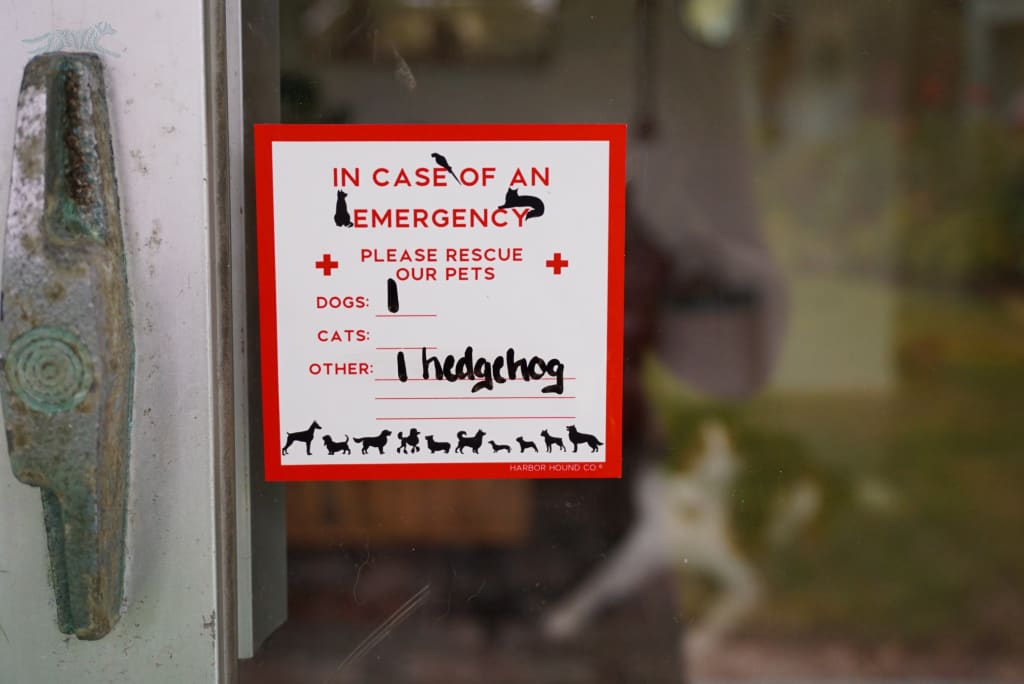 IN CASE OF AN
EMERGENCY
PLEASE RESCUE
OUR PETS
DOGS: 1
CATS:
OTHER: 1 hedgehog
HARBOR HOUND CO.®